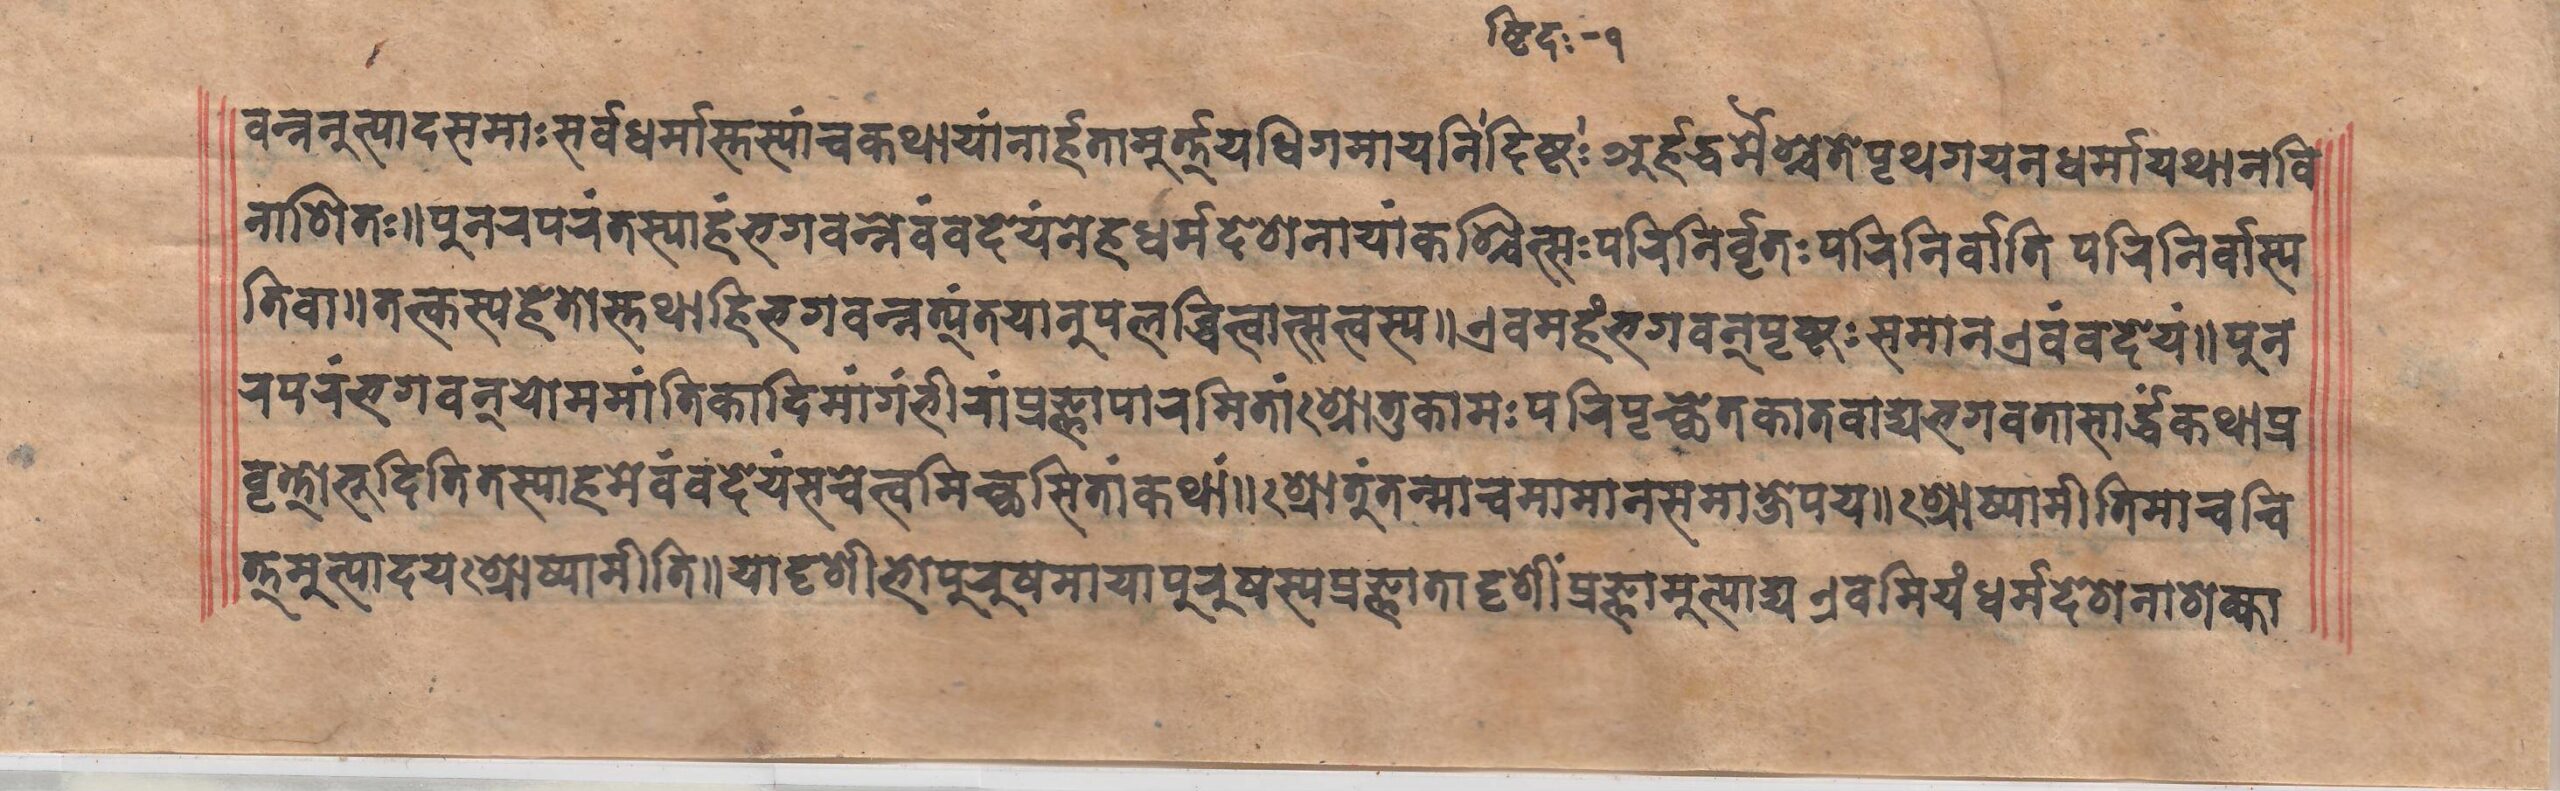 ष्टिदः-१
वन्ननुत्पादसमाः सर्वधर्मास्तस्यांचकथायांनार्हतामुर्त्तयधिगमायनिर्दिष्टः अर्हद्धर्मैश्चेतेपृथगयनधर्मायथानवि
नाशितः॥पुनरपरंतस्याहंभगवन्नेवंवदेयंनेहधर्मदेशनायांकश्चित्सःपरिनिर्वृतःपरिनिर्वाति परिनिर्वास्य
तिवा॥तत्कस्यहेतोस्तथाहिभगवन्नत्यंतयानुपलब्धित्वात्सत्वस्य॥एवमहंभगवन्पृष्टःसमानएवंवदेयं॥पुन
रपरंभगवन्योममांतिकादिमांगंभीरांप्रज्ञापारमितांश्रोतुकामःपरिपृच्छेतकातवाद्यभगवतासार्द्धंकथाप्र
वृत्तोभूदितितस्याहमेवंवदेयंसचेत्वमिच्छसितांकथां॥श्रोतुंतन्माचमामानसमाज्ञेपय॥श्रोष्यामीतिमाचचि
त्तमुत्पादयश्रोष्यामीति॥यादृशीभोपुरुषमायापुरुषस्यप्रज्ञातादृशींप्रज्ञामुत्पाद्यएवमियंधर्मदेशनाशक्या